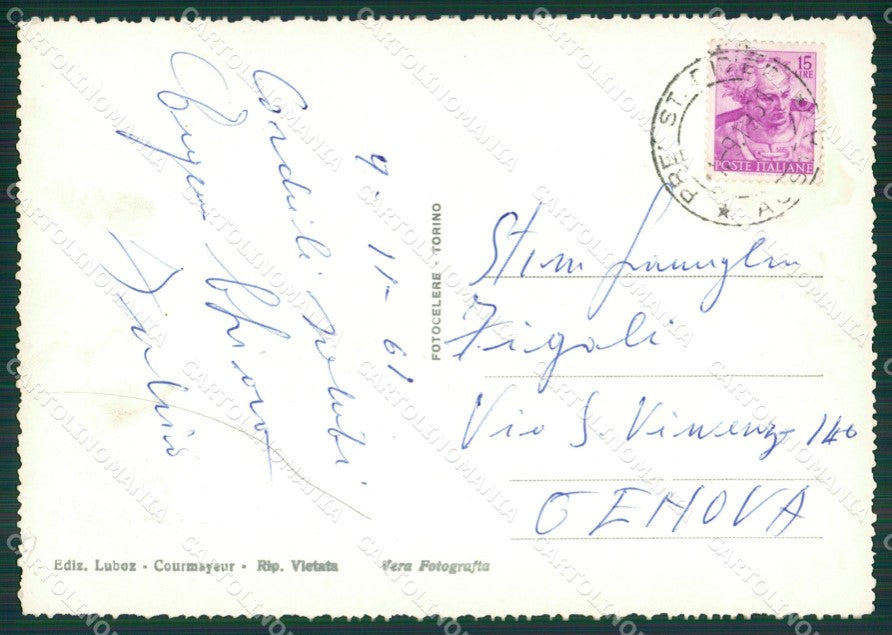 9-11-61
Cordiali saluti
Stim Famiglia
Figali
Via S. Vincenzo 140
GENOVA
FOTOCELERE - TORINO
15
LIRE
POSTE ITALIANE
PRE ST. DIDIER
AOSTA
Ediz. Luboz - Courmayeur - Rip. Vietata
Vera Fotografia
CARTOLINOMANIA